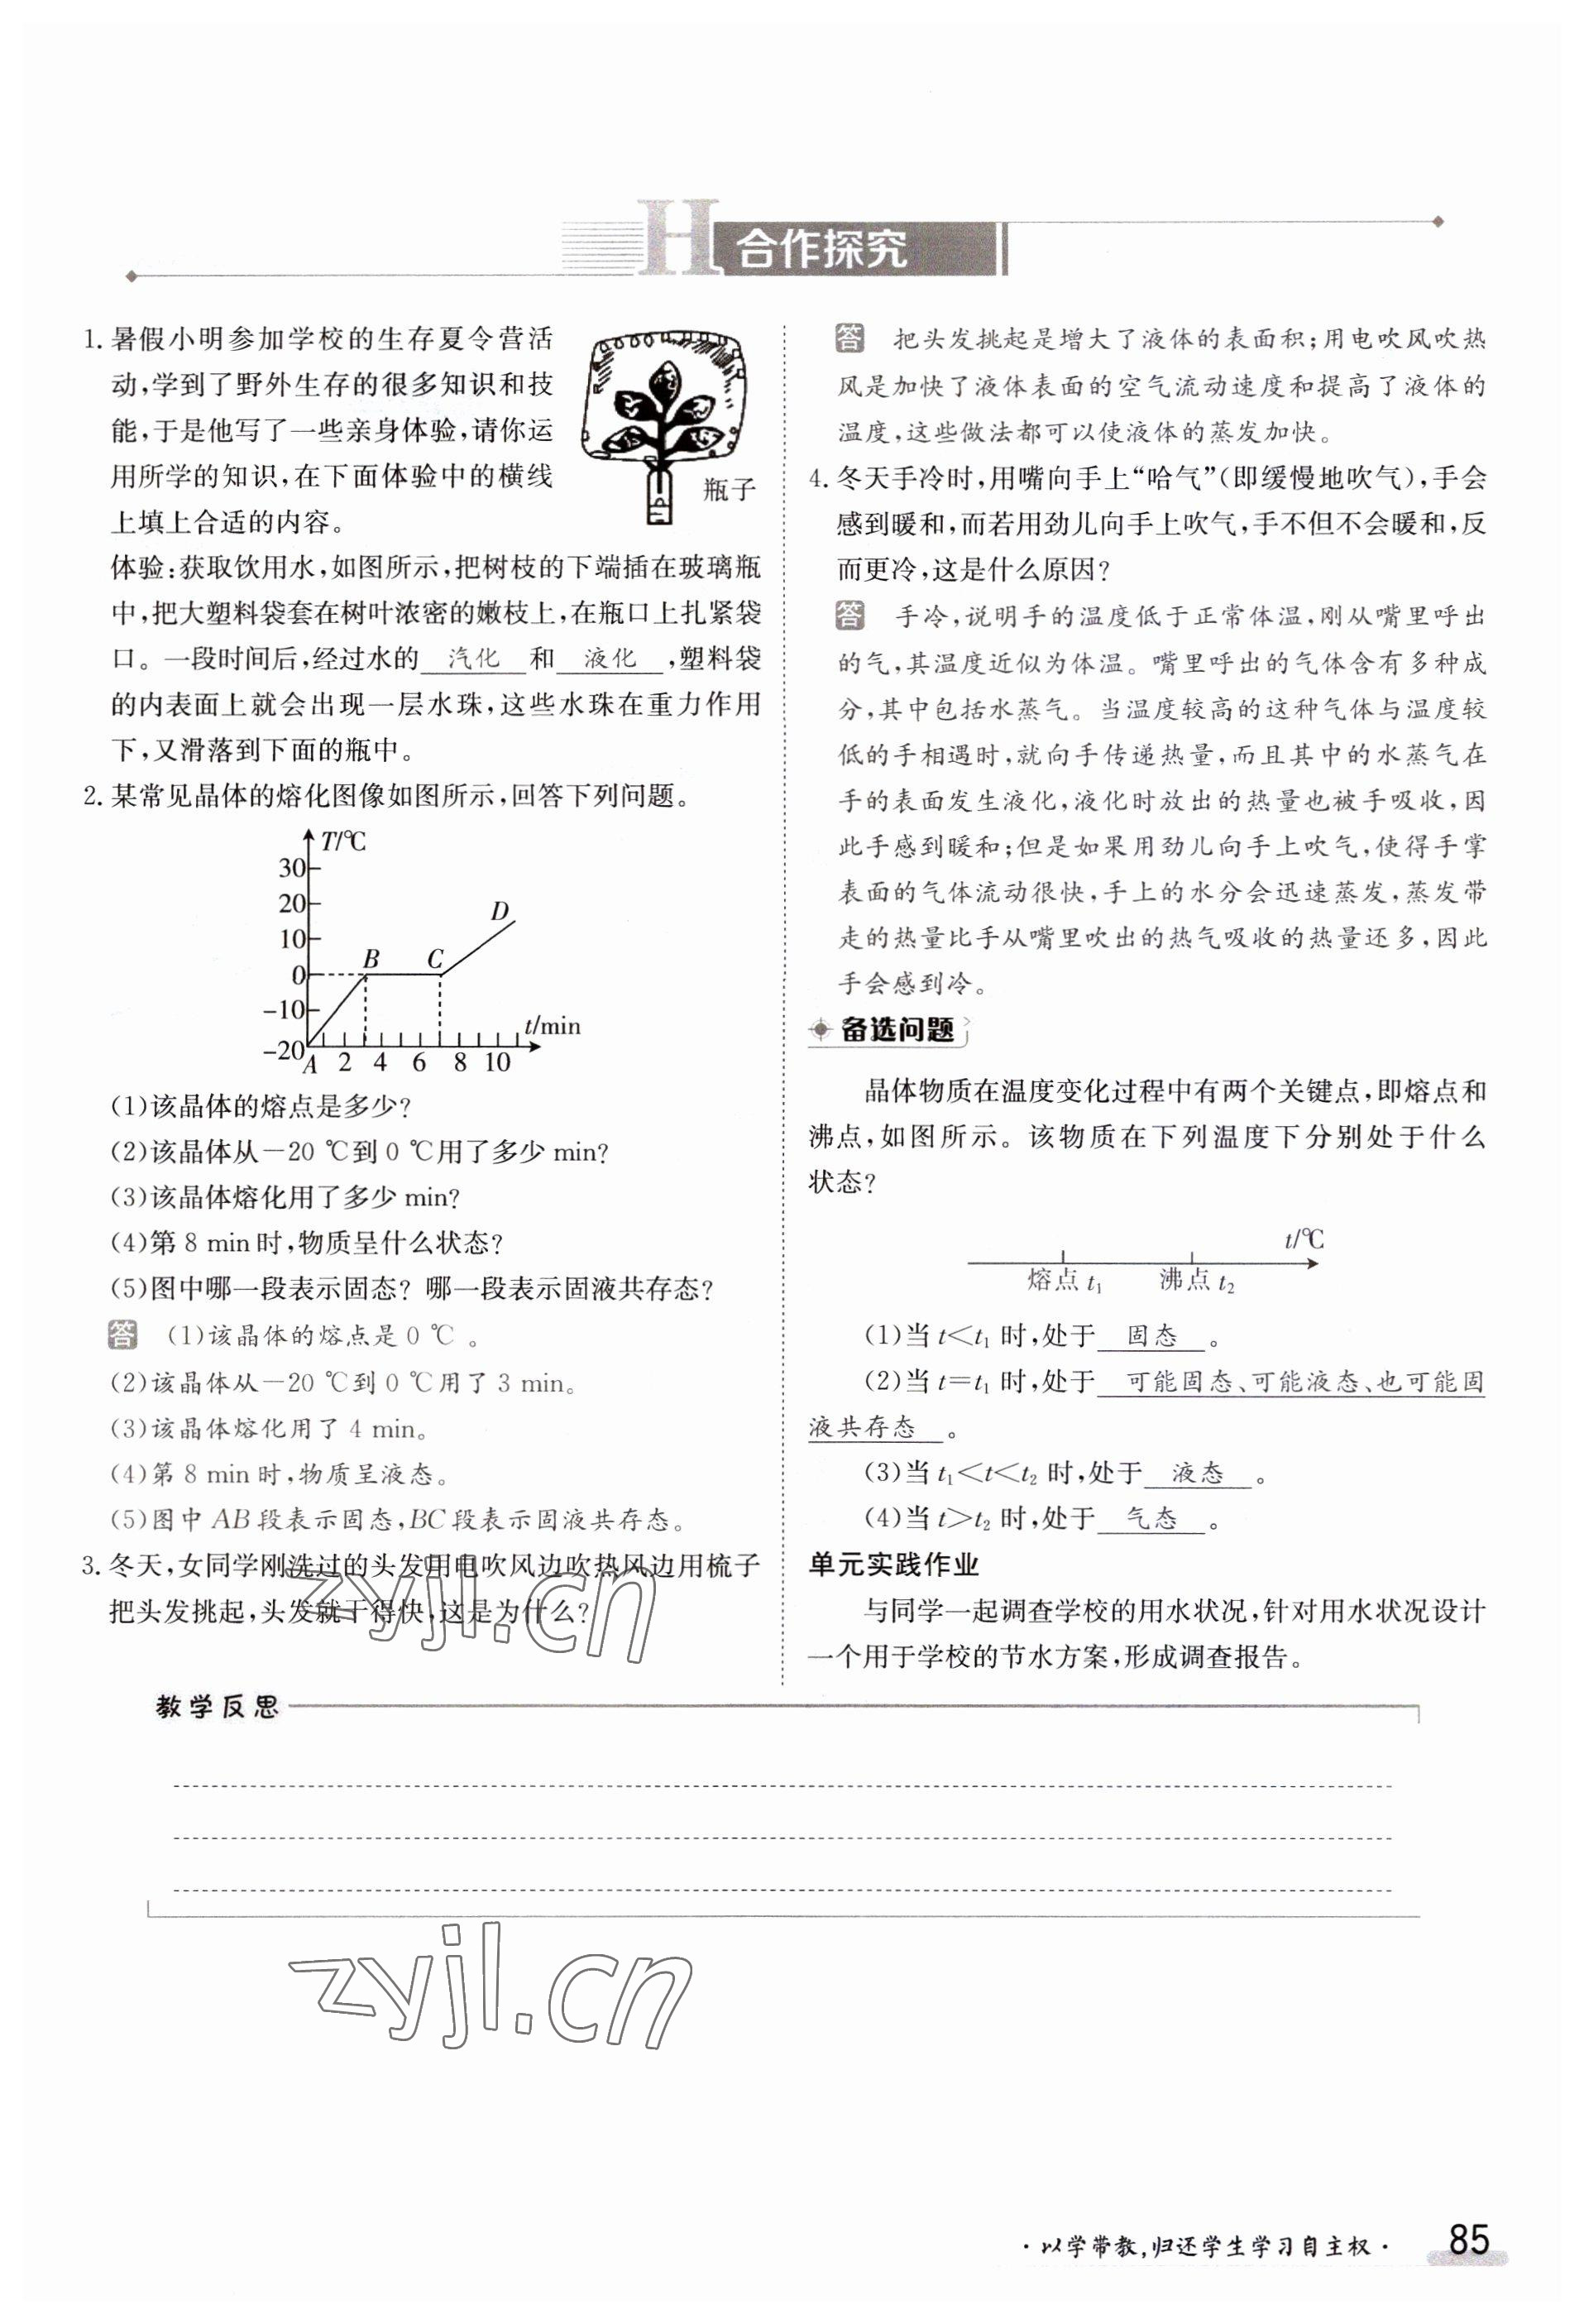 H 合作探究
1. 暑假小明参加学校的生存夏令营活
动,学到了野外生存的很多知识和技
能,于是他写了一些亲身体验,请你运
用所学的知识,在下面体验中的横线
上填上合适的内容。
瓶子
体验:获取饮用水,如图所示,把树枝的下端插在玻璃瓶
中,把大塑料袋套在树叶浓密的嫩枝上,在瓶口上扎紧袋
口。一段时间后,经过水的 汽化 和 液化 ,塑料袋
的内表面上就会出现一层水珠,这些水珠在重力作用
下,又滑落到下面的瓶中。
2. 某常见晶体的熔化图像如图所示,回答下列问题。
T/℃
30
20
10
0
-10
-20
A B C D
2 4 6 8 10
t/min
(1)该晶体的熔点是多少?
(2)该晶体从-20 ℃到 0 ℃用了多少 min?
(3)该晶体熔化用了多少 min?
(4)第 8 min 时,物质呈什么状态?
(5)图中哪一段表示固态? 哪一段表示固液共存态?
答 (1)该晶体的熔点是 0 ℃ 。
(2)该晶体从-20 ℃到 0 ℃用了 3 min。
(3)该晶体熔化用了 4 min。
(4)第 8 min 时,物质呈液态。
(5)图中 AB 段表示固态,BC 段表示固液共存态。
3. 冬天,女同学刚洗过的头发用电吹风边吹热风边用梳子
把头发挑起,头发就干得快,这是为什么?
zyjl.cn
答 把头发挑起是增大了液体的表面积;用电吹风吹热
风是加快了液体表面的空气流动速度和提高了液体的
温度,这些做法都可以使液体的蒸发加快。
4. 冬天手冷时,用嘴向手上“哈气”(即缓慢地吹气),手会
感到暖和,而若用劲儿向手上吹气,手不但不会暖和,反
而更冷,这是什么原因?
答 手冷,说明手的温度低于正常体温,刚从嘴里呼出
的气,其温度近似为体温。嘴里呼出的气体含有多种成
分,其中包括水蒸气。当温度较高的这种气体与温度较
低的手相遇时,就向手传递热量,而且其中的水蒸气在
手的表面发生液化,液化时放出的热量也被手吸收,因
此手感到暖和;但是如果用劲儿向手上吹气,使得手掌
表面的气体流动很快,手上的水分会迅速蒸发,蒸发带
走的热量比手从嘴里吹出的热气吸收的热量还多,因此
手会感到冷。
备选问题
晶体物质在温度变化过程中有两个关键点,即熔点和
沸点,如图所示。该物质在下列温度下分别处于什么
状态?
t/℃
熔点 t₁ 沸点 t₂
(1)当 t<t₁ 时,处于 固态 。
(2)当 t=t₁ 时,处于 可能固态、可能液态、也可能固
液共存态 。
(3)当 t₁<t<t₂ 时,处于 液态 。
(4)当 t>t₂ 时,处于 气态 。
单元实践作业
与同学一起调查学校的用水状况,针对用水状况设计
一个用于学校的节水方案,形成调查报告。
教学反思
zyjl.cn
·以学带教,归还学生学习自主权· 85